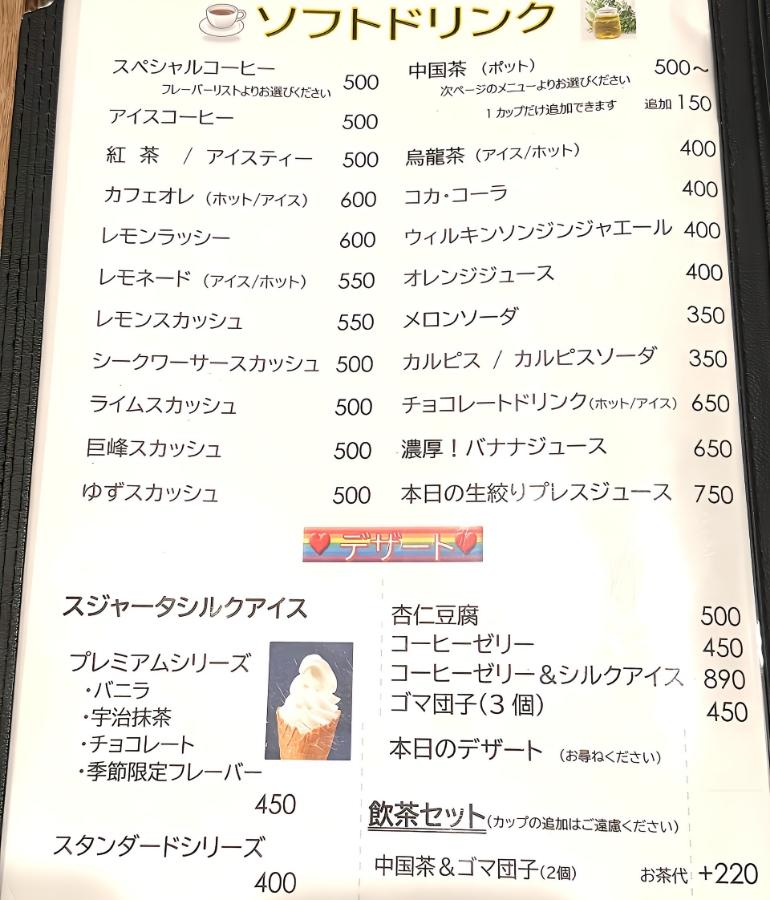 ソフトドリンク
スペシャルコーヒー 500
フレーバーリストよりお選びください
アイスコーヒー 500
紅 茶 / アイスティー 500
カフェオレ (ホット/アイス) 600
レモンラッシー 600
レモネード (アイス/ホット) 550
レモンスカッシュ 550
シークワーサースカッシュ 500
ライムスカッシュ 500
巨峰スカッシュ 500
ゆずスカッシュ 500
中国茶 (ポット) 500～
次ページのメニューよりお選びください
1カップだけ追加できます 追加 150
烏龍茶 (アイス/ホット) 400
コカ・コーラ 400
ウィルキンソンジンジャエール 400
オレンジジュース 400
メロンソーダ 350
カルピス / カルピスソーダ 350
チョコレートドリンク(ホット/アイス) 650
濃厚！バナナジュース 650
本日の生絞りプレスジュース 750
デザート
スジャータシルクアイス
プレミアムシリーズ
・バニラ
・宇治抹茶
・チョコレート
・季節限定フレーバー
450
スタンダードシリーズ
400
杏仁豆腐 500
コーヒーゼリー 450
コーヒーゼリー＆シルクアイス 890
ゴマ団子(3個) 450
本日のデザート (お尋ねください)
飲茶セット(カップの追加はご遠慮ください)
中国茶＆ゴマ団子(2個) お茶代 +220